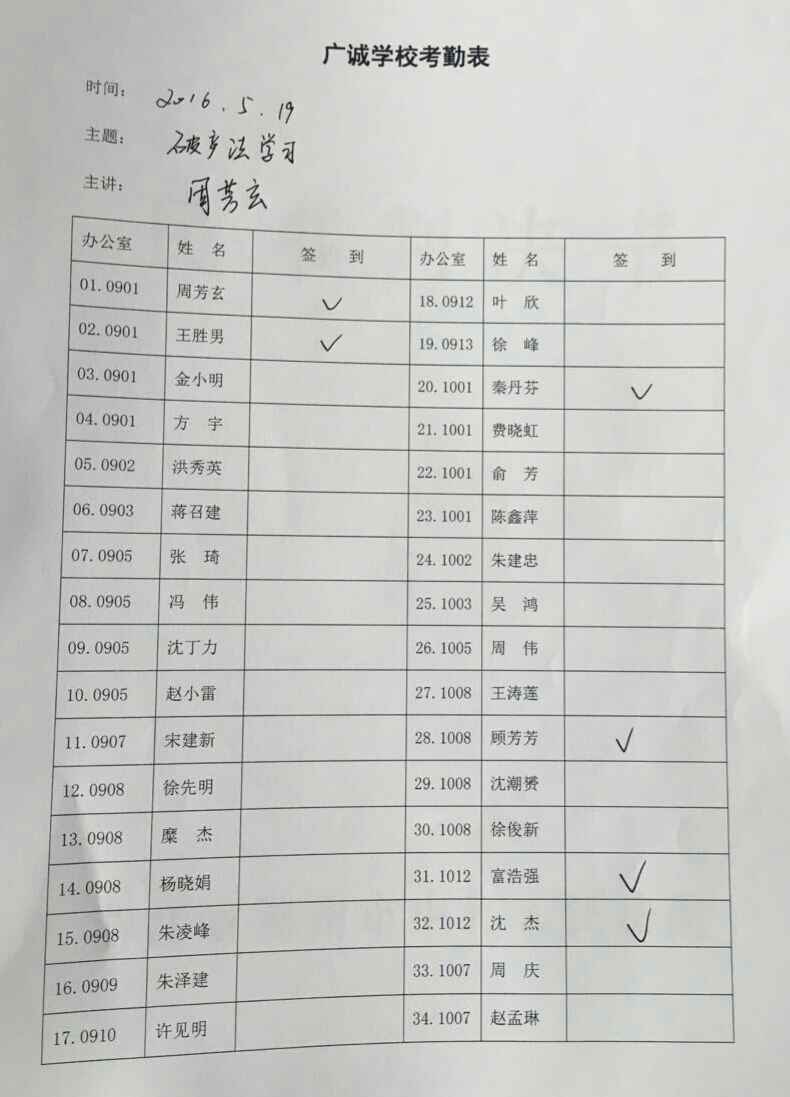 广诚学校考勤表
时间： 2016.5.19
主题： 破产法学习
主讲： 周芳玄
办公室 姓 名 签 到 办公室 姓 名 签 到
01.0901 周芳玄 ✓ 18.0912 叶 欣
02.0901 王胜男 ✓ 19.0913 徐 峰
03.0901 金小明 20.1001 秦丹芬 ✓
04.0901 方 宇 21.1001 费晓虹
05.0902 洪秀英 22.1001 俞 芳
06.0903 蒋召建 23.1001 陈鑫萍
07.0905 张 琦 24.1002 朱建忠
08.0905 冯 伟 25.1003 吴 鸿
09.0905 沈丁力 26.1005 周 伟
10.0905 赵小雷 27.1008 王涛莲
11.0907 宋建新 28.1008 顾芳芳 ✓
12.0908 徐先明 29.1008 沈潮赟
13.0908 糜 杰 30.1008 徐俊新
14.0908 杨晓娟 31.1012 富浩强 ✓
15.0908 朱凌峰 32.1012 沈 杰 ✓
16.0909 朱泽建 33.1007 周 庆
17.0910 许见明 34.1007 赵孟琳